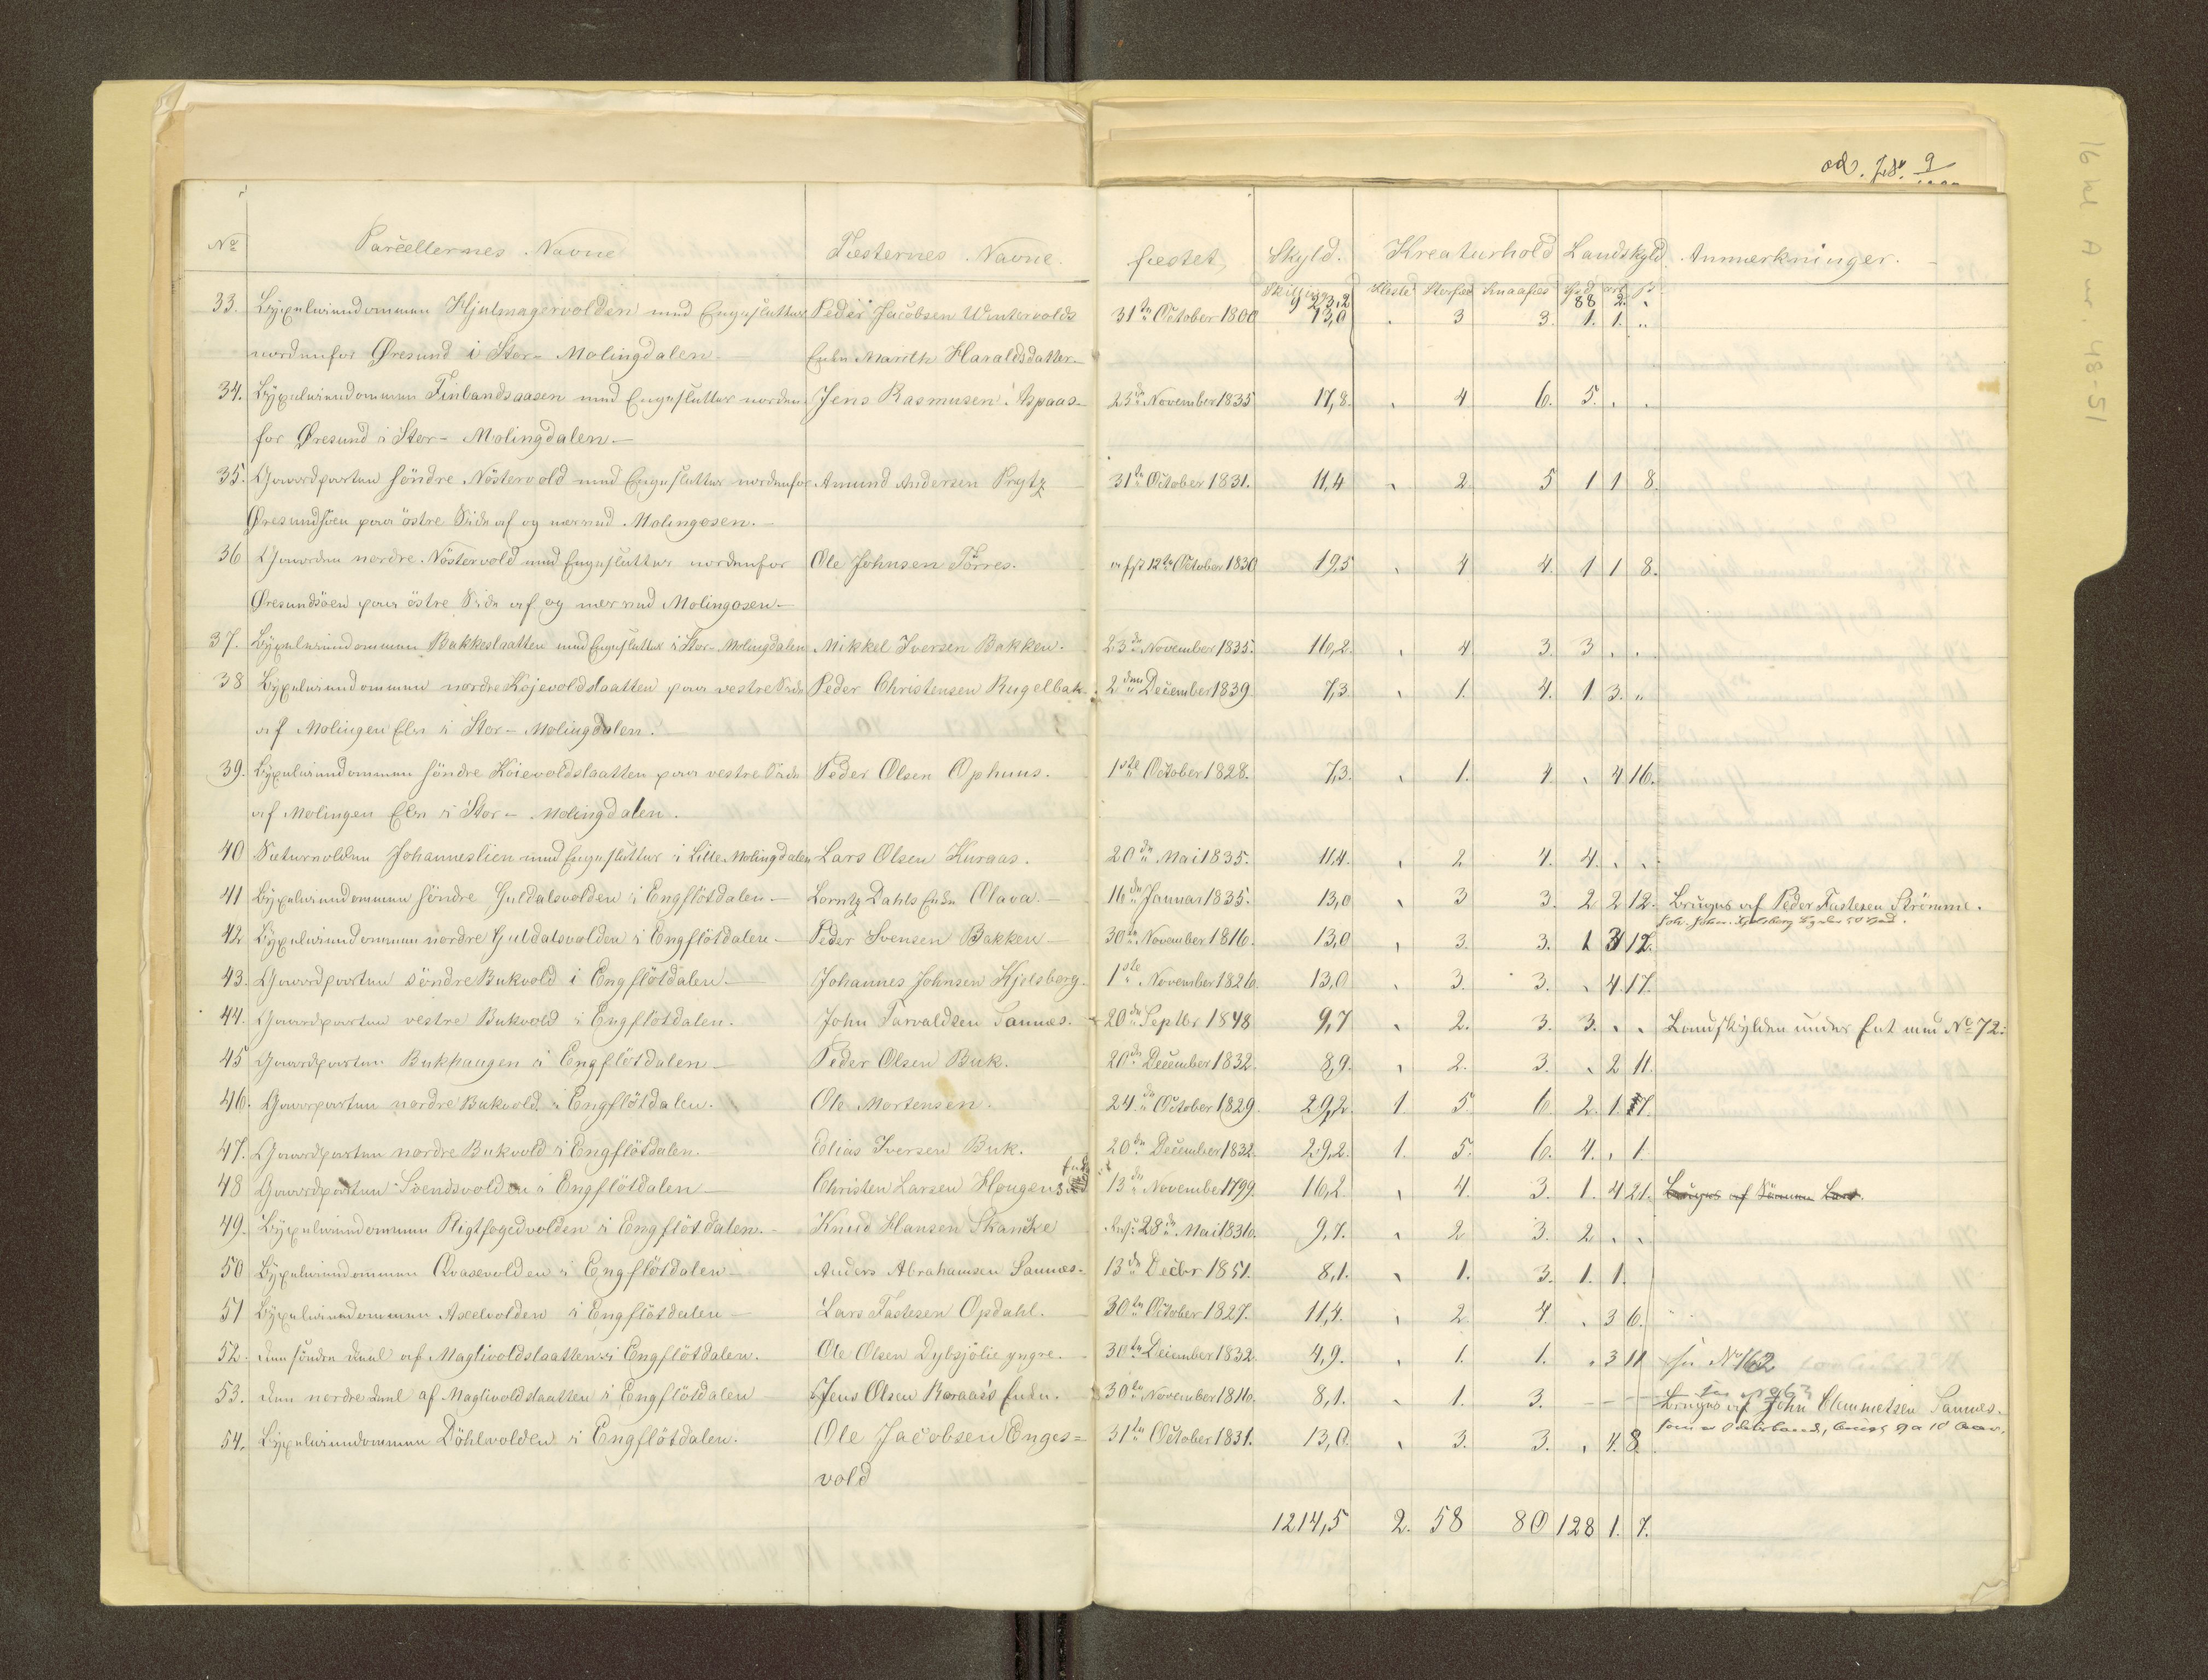 od. Js. 9
16 kl A nr. 48-51
No Parcellernes Navne Fæsternes Navne. fæstet Skyld. Kreaturhold Landskyld Anmærkninger.
Skilling Heste Storfæ Smaafæ Spd ort ß
923,2 88 2 "
33. Byxeleiendommen Hjulmagervolden med Engeslutter Peder Jacobsen Wintervolds 31te October 1800 13,0 " 3 3. 1. 1. "
nordenfor Øresund i Stor-Molingdalen Enke Marith Haraldsdatter.
34. Byxeleiendommen Finlandsaasen med Engeslutter norden Jens Rasmusen Aspaas 23de November 1835 17,8. " 4 6. 5. " "
for Øresund i Stor-Molingdalen.
35. Gaardparten Söndre Nöstervold med Engeslutter nordenfor Amund Andersen Prytz 31te October 1831. 11,4 " 2 5 1 1 8.
Øresundsöen paa östre Side af og nærved Molingosen.
36 Gaarden nordre Nöstervold med Engeslutter nordenfor Ole Johnsen Törres. 12te October 1830 19,5 " 4 4. 1 1 8.
Øresundsöen paa östre Side af og nærved Molingosen.
37. Byxeleiendommen Bakkeslaatten med Engeslutter i Stor-Molingdalen Mikkel Iversen Bakken. 23de November 1835. 16,2. " 4 3. 3 " "
38 Byxeleiendommen nordre Kojevoldslaatten paa vestre Side Peder Christensen Rugelbak. 2den December 1839 7,3 " 1. 4. 1 3. "
af Molingen Elv i Stor-Molingdalen.
39. Byxeleiendommen söndre Koievoldslaatten paa vestre Side Peder Olsen Ophuus. 1ste October 1828. 7,3. " 1. 4. " 4 16.
af Molingen Elv i Stor-Molingdalen.
40 Sætervolden Johanneslien med Engeslutter i Lille Molingdalen Lars Olsen Kuraas. 20de Mai 1835. 11,4. " 2 4. 4. " "
41 Byxeleiendommen söndre Guldalsvolden i Engflötdalen Lorntz Dahls Enke Olava. 16de Januar 1835. 13,0 " 3 3. 2 2 12. Bruges af Peder Fastesen Strömme.
42 Byxeleiendommen nordre Guldalsvolden i Engflötdalen Peder Svensen Bakken 30te November 1816. 13,0 " 3. 3. 1 3 12.
43. Gaardparten söndre Bukvold i Engflötdalen Johannes Johnsen Kjelsberg. 1ste November 1826. 13,0 " 3. 3. " 4. 17.
44. Gaardparten vestre Bukvold i Engflötdalen. John Tarvaldsen Sannes. 20de Septbr 1848 9,7 " 2. 3. 3. " " Landskylden under Et med No 72.
45 Gaardparten Bukhaugen i Engflötdalen Peder Olsen Buk. 20de December 1832. 8,9. " 2. 3. " 2 11.
46. Gaardparten nordre Bukvold i Engflötdalen. Ole Mortensen. 24de October 1829. 29,2. 1. 5. 6. 2. 1. 17.
47. Gaardparten nordre Bukvold i Engflötdalen. Elias Iversen Buk. 20de December 1832. 29,2. 1. 5. 6. 4. " 1.
48 Gaardparten Svendsvolden i Engflötdalen Christen Larsen Hougens Enke 13de November 1799. 16,2. " 4. 3. 1. 4 21. Bruges af Sönnen Lars.
49. Byxeleiendommen Pligtfogedvolden i Engflötdalen. Knud Hansen Skancke 28de Mai 1836. 9,7. " 2 3. 2 " "
50 Byxeleiendommen Qvasevolden i Engflötdalen Anders Abrahamsen Sannes. 13de Decbr 1851. 8,1. " 1. 3. 1. 1.
51 Byxeleiendommen Axelvolden i Engflötdalen Lars Fastesen Opdahl. 30te October 1827. 11,4. " 2 4. " 3 6.
52. den söndre Deel af Maglivoldslaatten i Engflötdalen. Ole Olsen Dybsjölie yngre. 30te December 1832. 4,9. " 1. 1. " 3 11 se No 162
53. den nordre Deel af Maglivoldslaatten i Engflötdalen Jens Olsen Koraas's Enke. 30te November 1810. 8,1. " 1. 3. - - - Bruges af John Clemmetsen Sannes.
54. Byxeleiendommen Döhlvolden i Engflötdalen. Ole Jacobsen Enges= 31te October 1831. 13,0. " 3. 3. " 4. 8.
vold
1214,5 2. 58 80 128 1. 7.